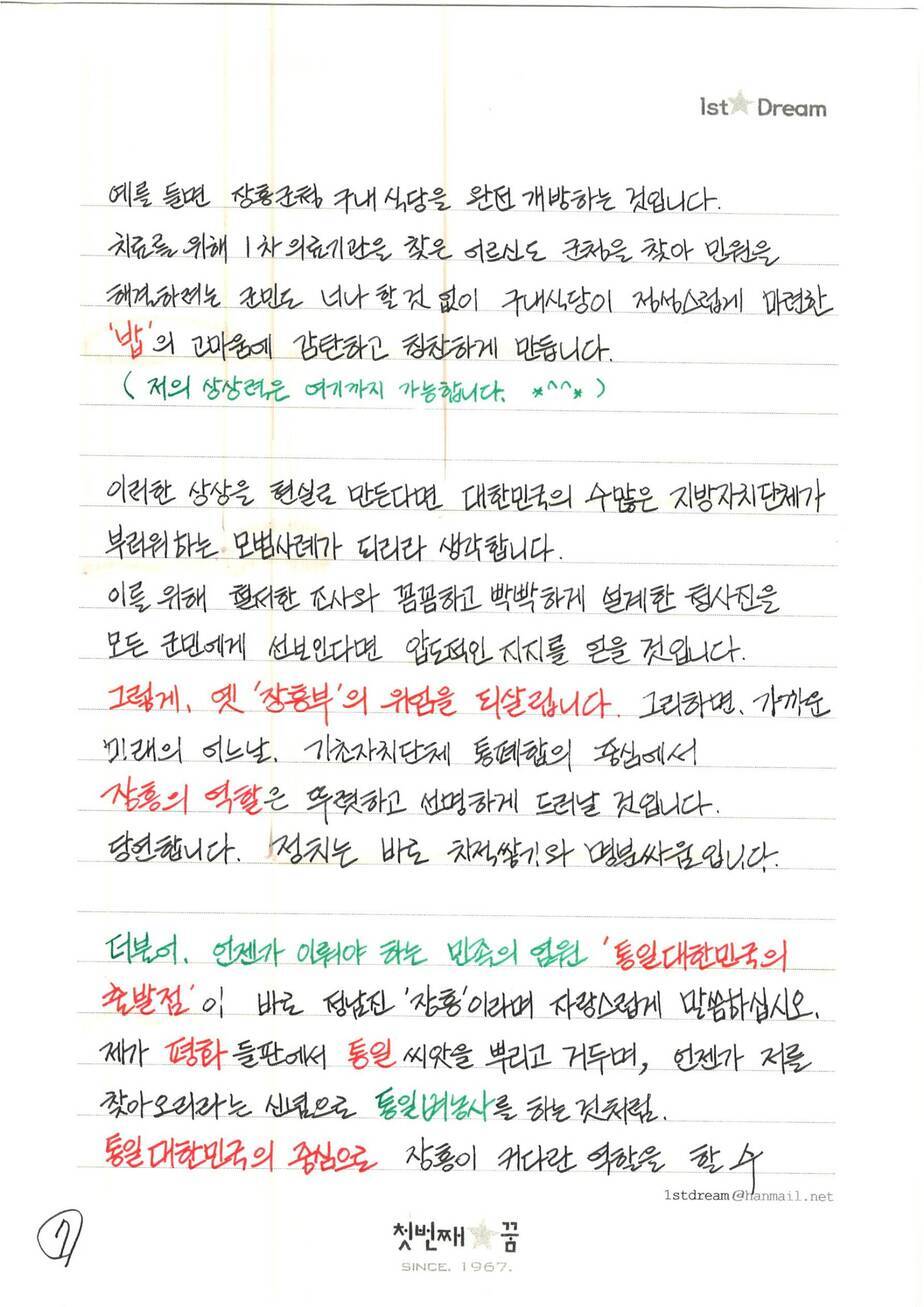 1st Dream
예를 들면 장흥군청 구내식당을 완전 개방하는 것입니다.
치료를 위해 1차 의료기관을 찾은 어르신도 군청을 찾아 민원을
해결하려는 군민도 너나 할 것 없이 구내식당이 정성스럽게 마련한
'밥'의 고마움에 감탄하고 칭찬하게 만듭니다.
( 저의 상상력은 여기까지 가능합니다. *^^* )
이러한 상상을 현실로 만든다면 대한민국의 수많은 지방자치단체가
부러워하는 모범사례가 되리라 생각합니다.
이를 위해 철저한 조사와 꼼꼼하고 빡빡하게 설계한 청사진을
모든 군민에게 선보인다면 압도적인 지지를 얻을 것입니다.
그렇게, 옛 '장흥부'의 위엄을 되살립니다. 그리하면, 가까운
미래의 어느날, 기초자치단체 통폐합의 중심에서
장흥의 역할은 뚜렷하고 선명하게 드러날 것입니다.
당연합니다. 정치는 바로 치적쌓기와 명분싸움입니다.
더불어, 언젠가 이뤄야 하는 민족의 염원 '통일대한민국의
출발점'이 바로 정남진 '장흥'이라며 자랑스럽게 말씀하십시오.
제가 평화 들판에서 통일 씨앗을 뿌리고 거두며, 언젠가 저를
찾아오리라는 신념으로 통일벼농사를 하는 것처럼.
통일대한민국의 중심으로 장흥이 커다란 역할을 할 수
1stdream@hanmail.net
7
첫번째 꿈
SINCE. 1967.